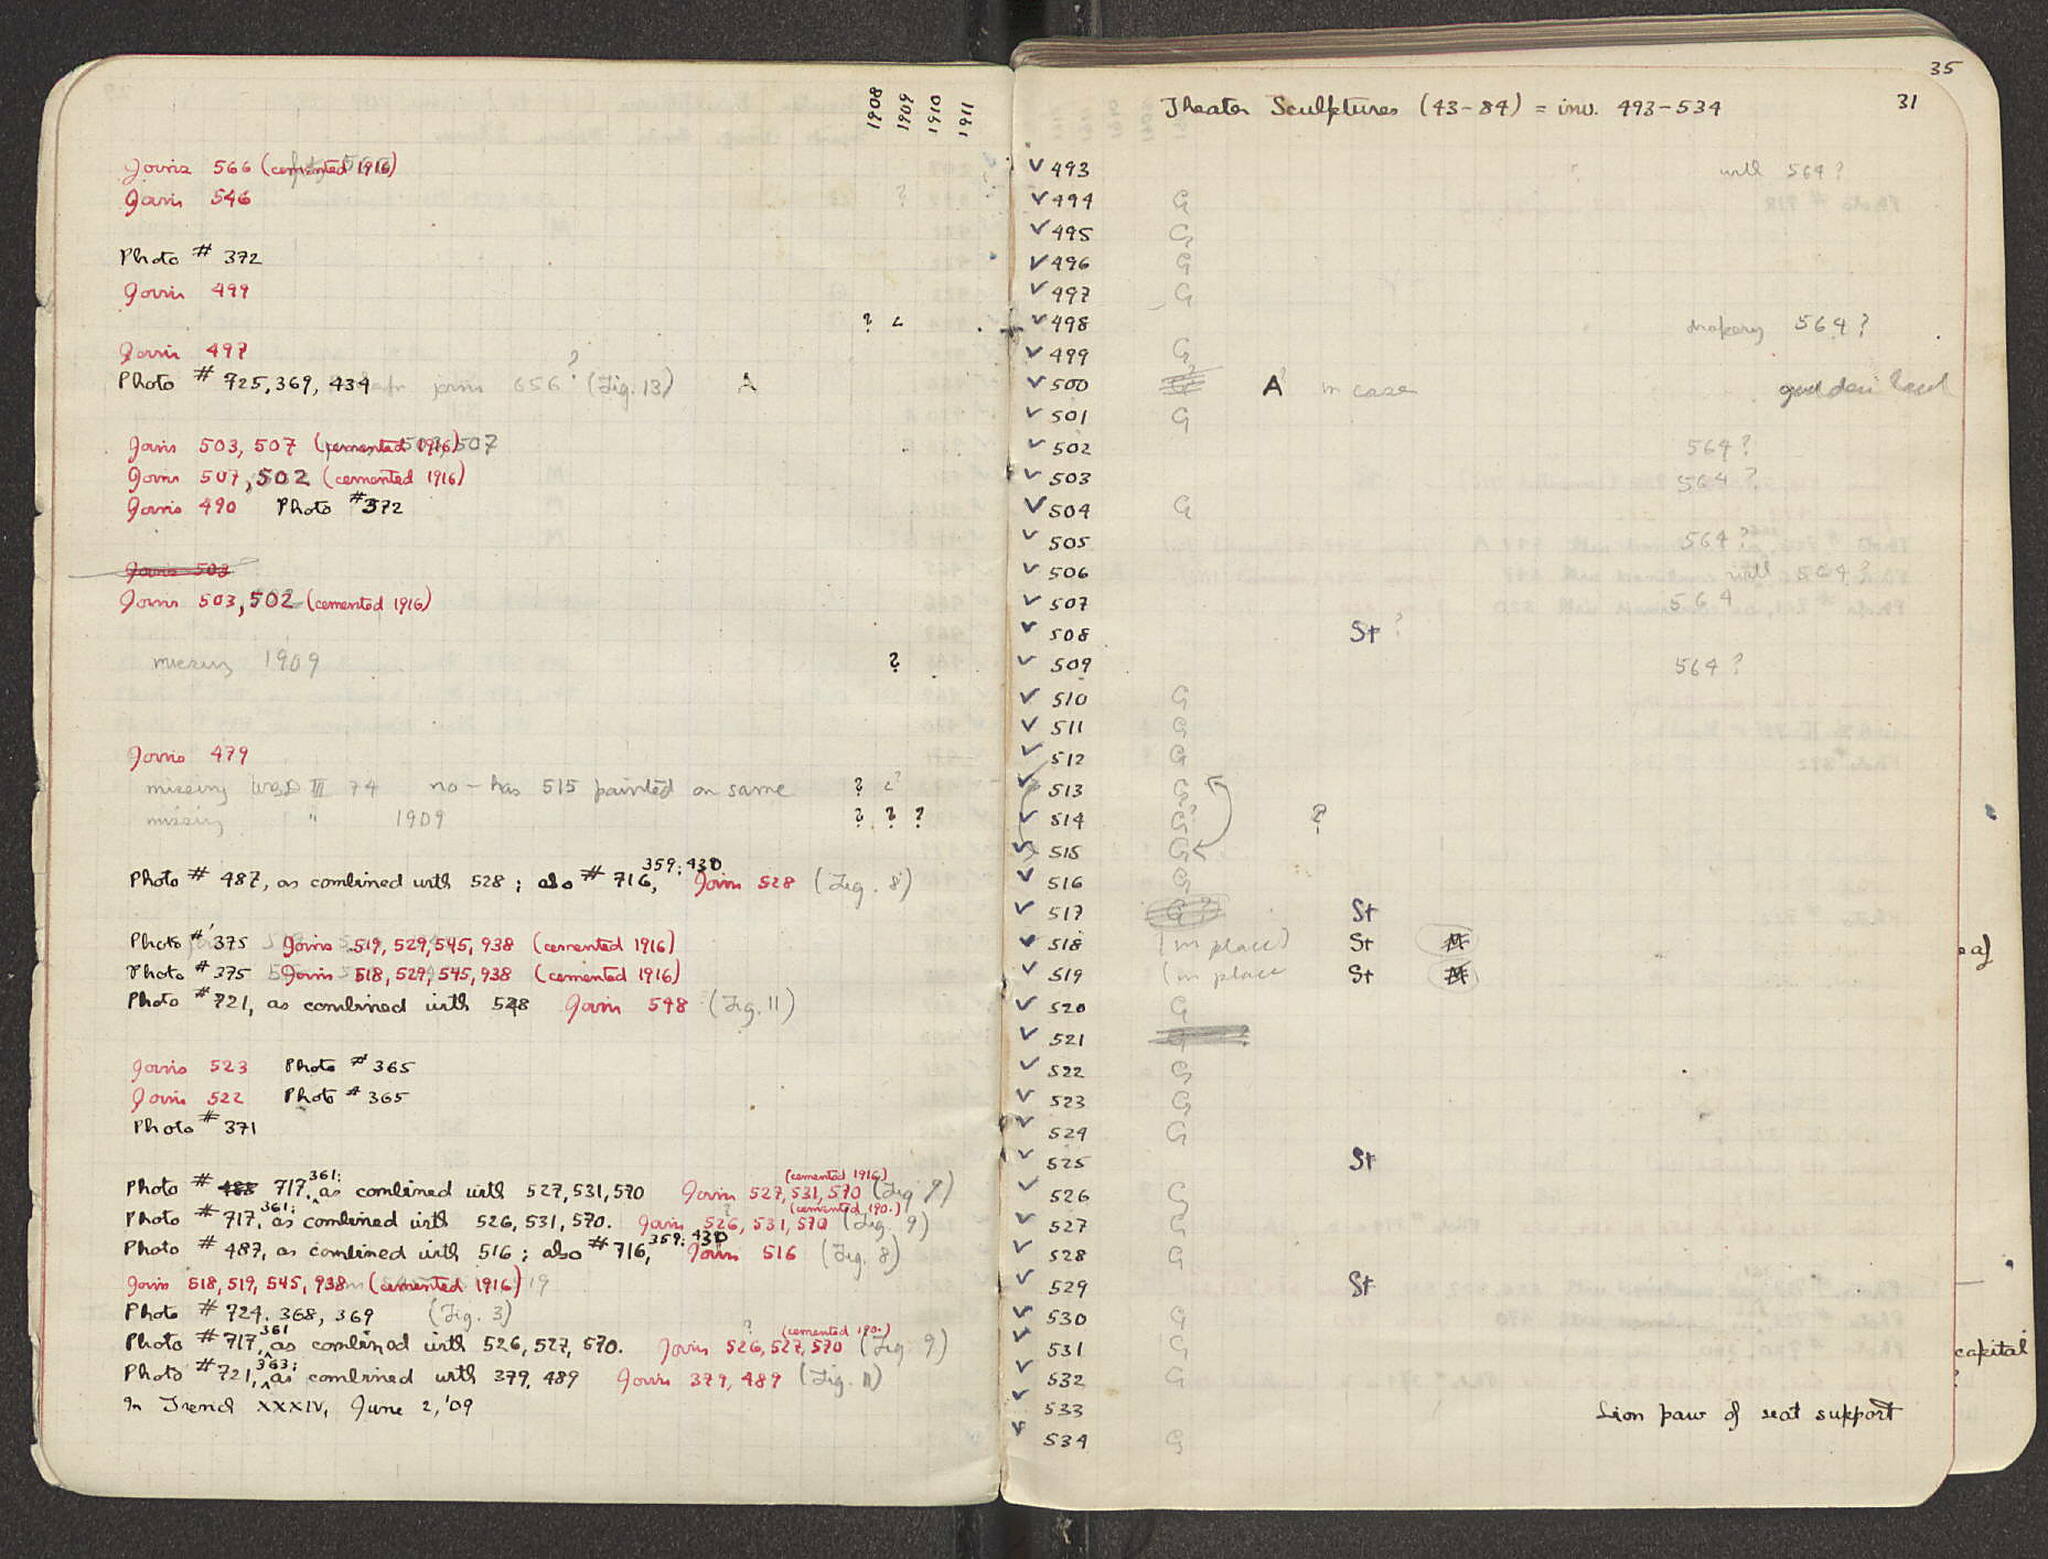 1908 1909 1910 1911
Joins 566 (cemented 1916)
Joins 546 ?
Photo # 372
Joins 499
? ?
Joins 497
Photo # 725, 369, 434 joins 656? (Fig. 13) A
Joins 503, 507 (cemented 1916) 507
Joins 507, 502 (cemented 1916)
Joins 490 Photo # 372
Joins 503
Joins 503, 502 (cemented 1916)
missing 1909 ?
Joins 479
missing III 74 no - has 515 painted on same ? ?
missing " 1909 ? ? ?
Photo # 487, as combined with 528; also # 716, 359; 430 Joins 528 (Fig. 8)
Photo # 375 Joins 519, 529, 545, 938 (cemented 1916)
Photo # 375 Joins 518, 529, 545, 938 (cemented 1916)
Photo # 721, as combined with 548 Joins 548 (Fig. 11)
Joins 523 Photo # 365
Joins 522 Photo # 365
Photo # 371
Photo # 488 717, 361; as combined with 527, 531, 570 Joins 527, 531, 570 (cemented 1916) (Fig 9)
Photo # 717, 361; as combined with 526, 531, 570. Joins 526, 531, 570 (cemented 190.) (Fig. 9)
Photo # 487, as combined with 516; also # 716, 359; 430 Joins 516 (Fig. 8)
Joins 518, 519, 545, 938 (cemented 1916)
Photo # 724, 368, 369 (Fig. 3)
Photo # 717, 361 as combined with 526, 527, 570. Joins 526, 527, 570 ? (cemented 190.) (Fig 9)
Photo # 721, 363; as combined with 379, 489 Joins 379, 489 (Fig. 11)
In Trench XXXIV, June 2, '09
35
Theater Sculptures (43-84) = inv. 493-534 31
✓ 493 with 564?
✓ 494 G
✓ 495 G
✓ 496 G
✓ 497 G
✓ 498 drapery 564?
✓ 499 G
✓ 500 G? A? in case head
✓ 501 G
✓ 502 564?
✓ 503 564?
✓ 504 G
✓ 505 564?
✓ 506 with 564?
✓ 507 564
✓ 508 St?
✓ 509 564?
✓ 510 G
✓ 511 G
✓ 512 G
✓ 513 G
✓ 514 G? ?
✓ 515 G
✓ 516 G
✓ 517 G? St
✓ 518 (in place) St M
✓ 519 (in place St M
✓ 520 G
✓ 521 G
✓ 522 G
✓ 523 G
✓ 524 G
✓ 525 St
✓ 526 G
✓ 527 G
✓ 528 G
✓ 529 St
✓ 530 G
✓ 531 G
✓ 532 G
✓ 533 Lion paw of seat support
✓ 534 G
capital